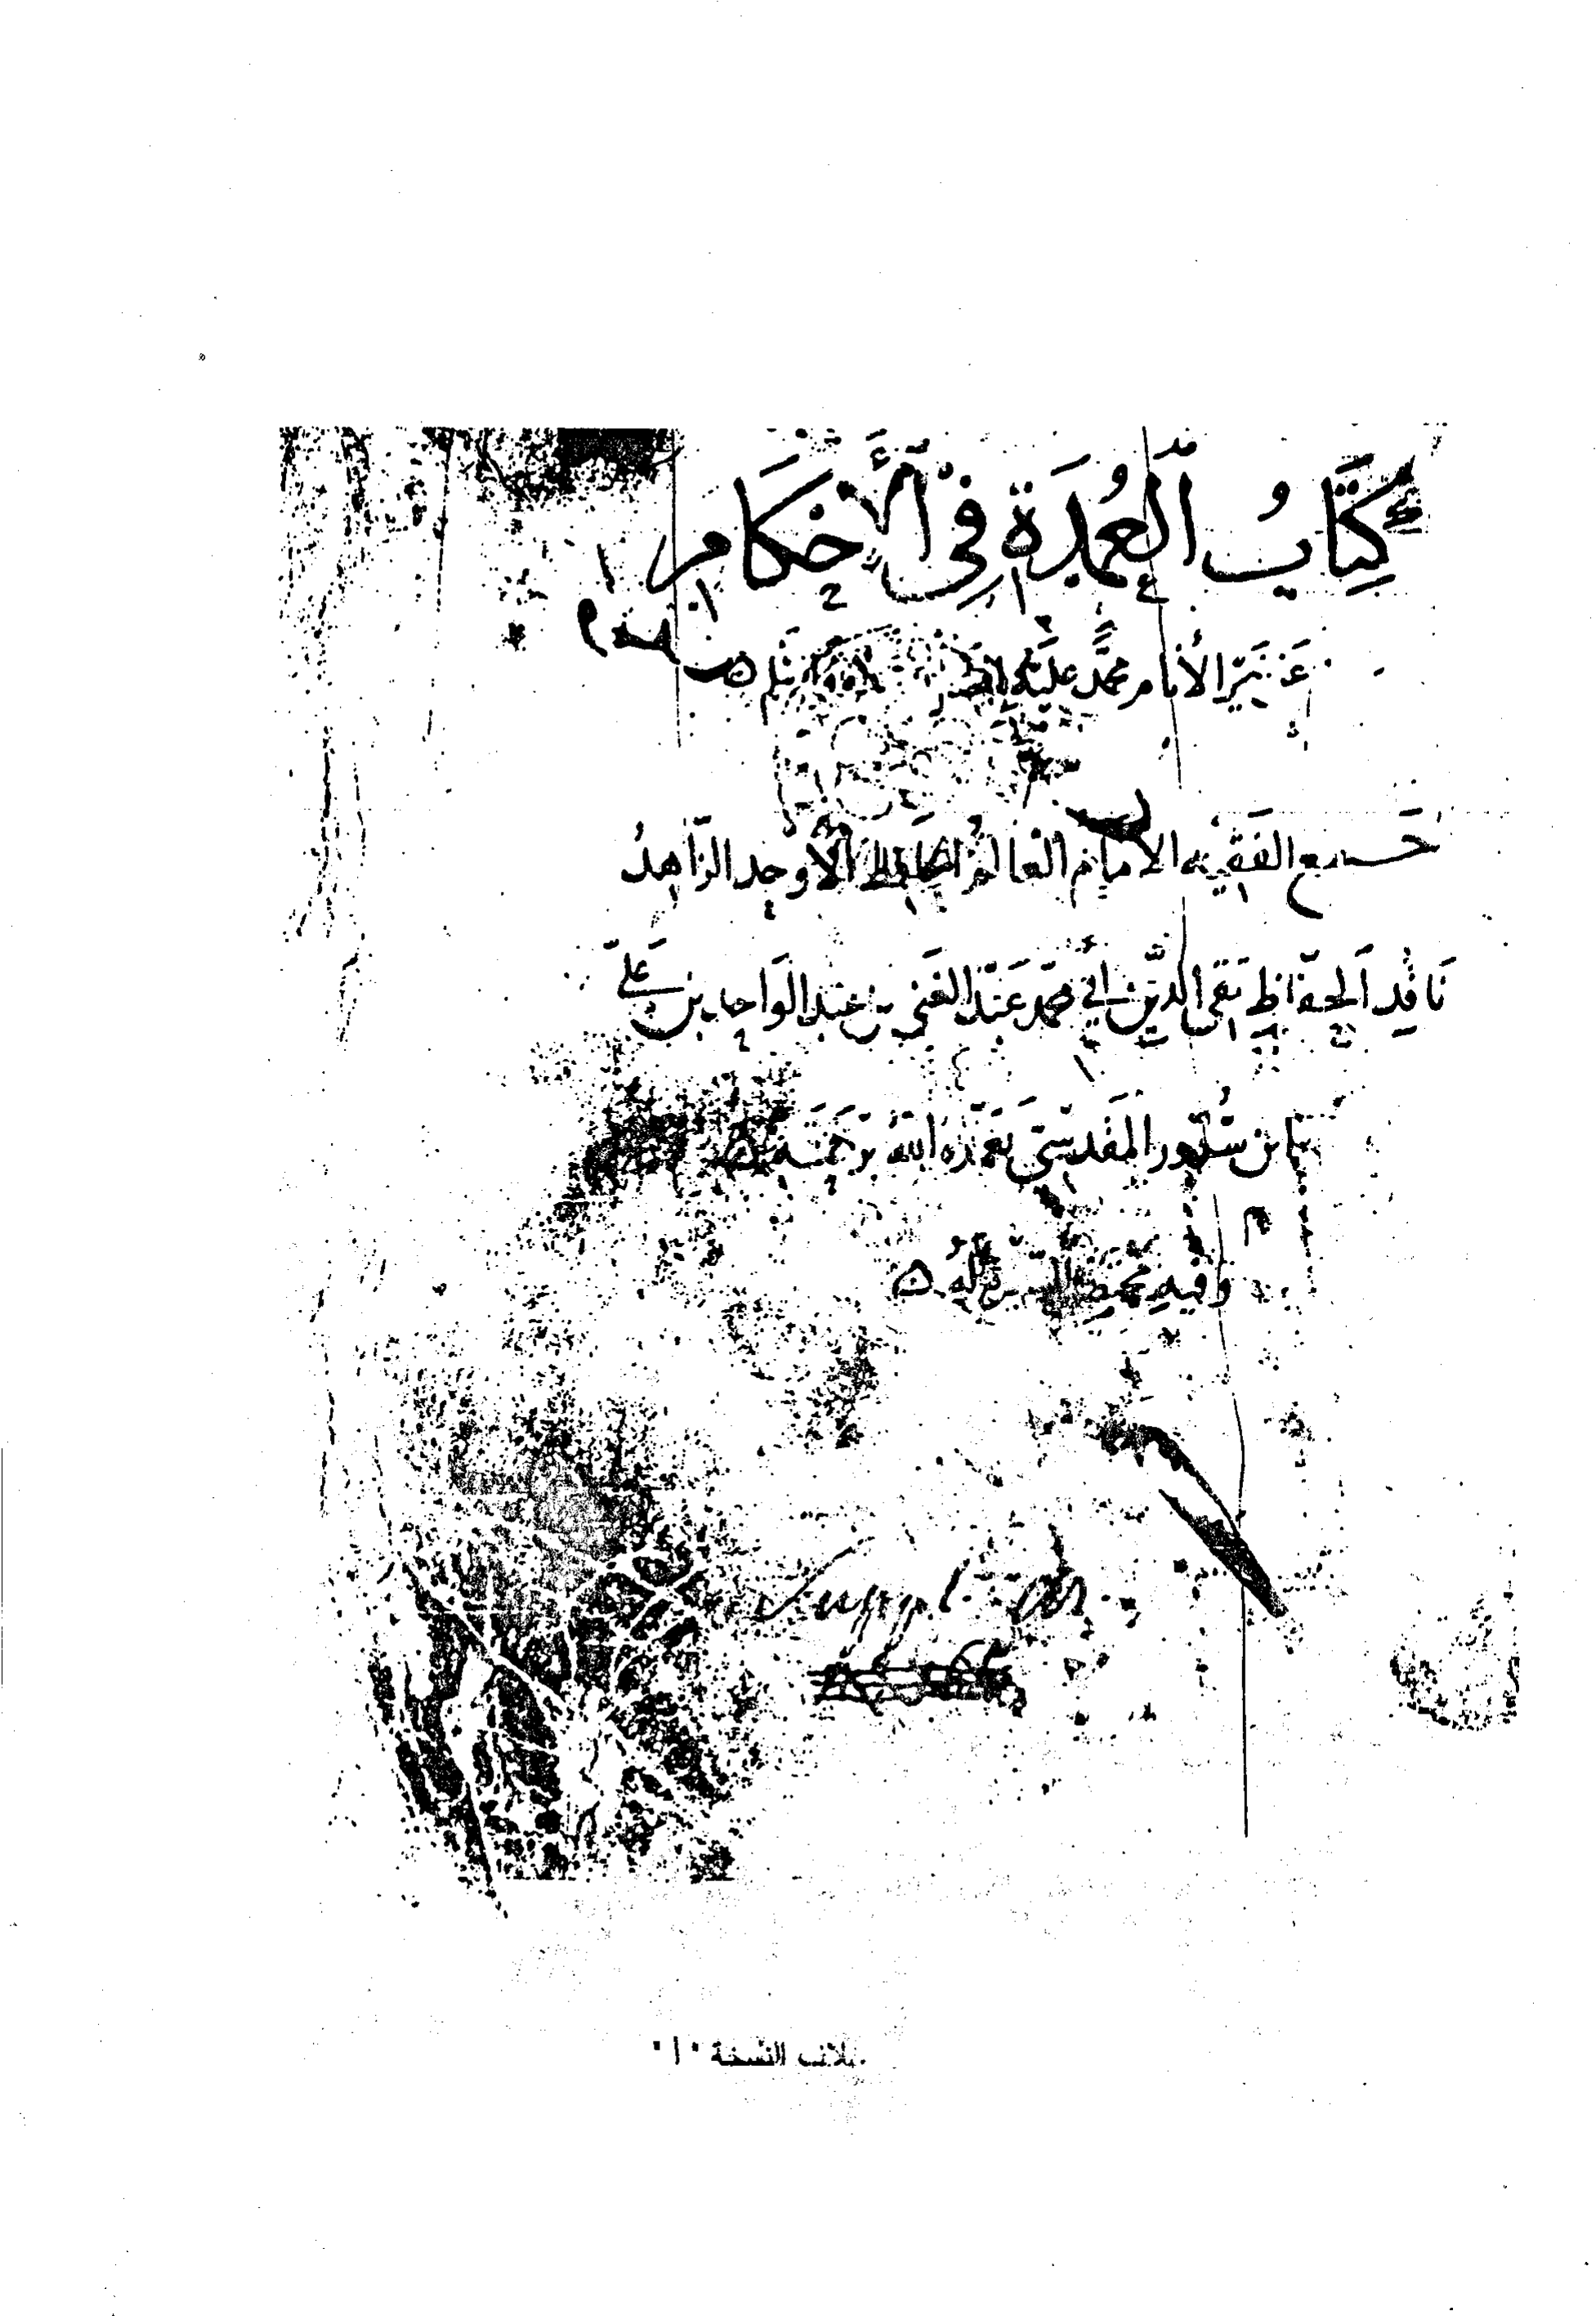 كِتَابُ اَلْعُمْدَةِ فِيْ اَلْأَحْكَامِ
عَن خَيْرِ الأَنَام مُحَمَّدٍ عَلَيْهِ
جَمع الفَقِيْه الإمام العَالم الحَافِظ الأَوْحد الزَّاهِدُ
نَاقِد اَلحفّاظِ تَقيّ الدِّين أبي محمّد عَبْد الغَني بن عَبد الوَاحد بن عَليّ
بن سُرُور المَقْدسيّ تغمّده اللّه برَحمَته
وَفيهِ
Suppl. ar.
غلاف النسخة ١